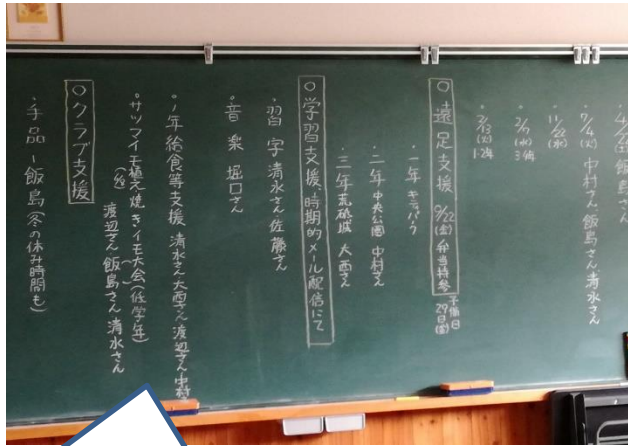 4/ 飯島さん
・7/4(火) 中村さん 飯島さん 清水さん
・11/22(水)
・2/7(水) 3年
・2/13(火) 1・2年
○遠足支援 9/22(金) 弁当持参 予備日29日(金)
・一年 キラパーク
・二年 中央公園 中村さん
・三年 荒砥城 大西さん
○学習支援、時期的メール配信にて
・習字 清水さん 佐藤さん
・音楽 堀口さん
・1年給食等支援 清水さん 大西さん 渡辺さん 中村
・サツマイモ植え 焼きイモ大会(低学年)
渡辺さん 飯島さん 清水さん
○クラブ支援
・手品-飯島(冬の休み時間も)